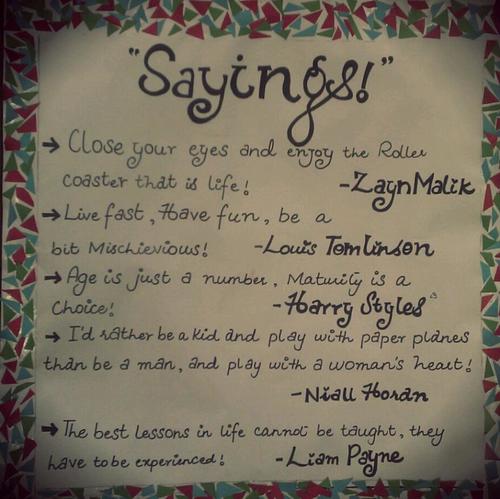 "Sayings!"
→ Close your eyes and enjoy the Roller
coaster that is life!   -Zayn Malik
→ Live fast, Have fun, be a
bit Mischievious!   -Louis Tomlinson
→ Age is just a number, Maturity is a
Choice!   -Harry Styles
→ I'd rather be a kid and play with paper planes
than be a man, and play with a woman's heart!
-Niall Horan
→ The best lessons in life cannot be taught, they
have to be experienced!   -Liam Payne